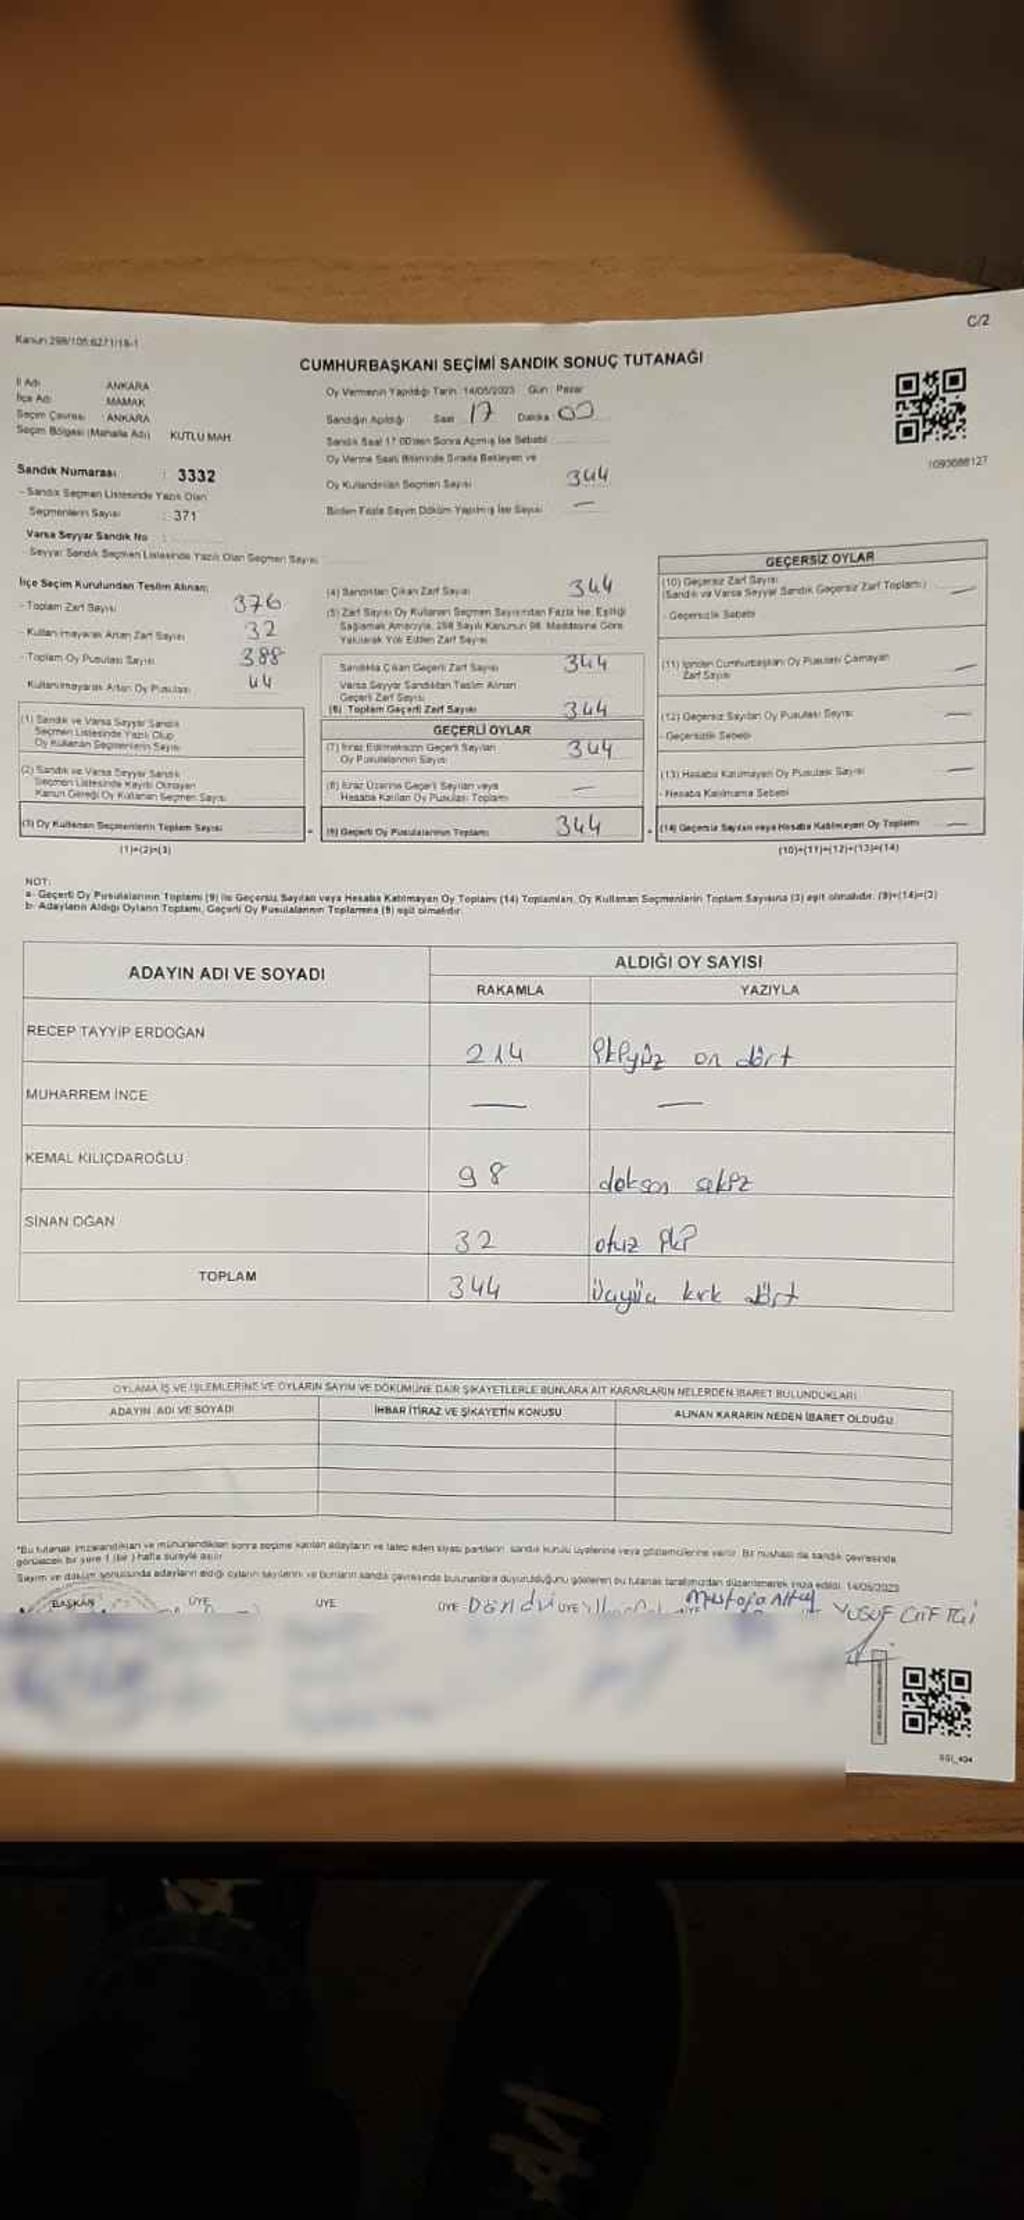 C/2
Kanun 298/105:6271/18-1
CUMHURBAŞKANI SEÇİMİ SANDIK SONUÇ TUTANAĞI
İl Adı ANKARA
İlçe Adı MAMAK
Seçim Çevresi : ANKARA
Seçim Bölgesi (Mahalle Adı) KUTLU MAH
Sandık Numarası : 3332
- Sandık Seçmen Listesinde Yazılı Olan
Seçmenlerin Sayısı : 371
Varsa Seyyar Sandık No :
- Seyyar Sandık Seçmen Listesinde Yazılı Olan Seçmen Sayısı
Oy Vermenin Yapıldığı Tarih: 14/05/2023 Gün: Pazar
Sandığın Açıldığı Saat 17 Dakika 00
Sandık Saat 17:00'den Sonra Açılmış İse Sebebi
Oy Verme Saati Bitiminde Sırada Bekleyen ve
Oy Kullandırılan Seçmen Sayısı 344
Birden Fazla Sayım Döküm Yapılmış İse Sayısı —
1093688127
İlçe Seçim Kurulundan Teslim Alınan;
- Toplam Zarf Sayısı 376
- Kullanılmayarak Artan Zarf Sayısı 32
- Toplam Oy Pusulası Sayısı 388
Kullanılmayarak Artan Oy Pusulası 44
(1) Sandık ve Varsa Seyyar Sandık
Seçmen Listesinde Yazılı Olup
Oy Kullanan Seçmenlerin Sayısı
(2) Sandık ve Varsa Seyyar Sandık
Seçmen Listesinde Kayıtlı Olmayan
Kanun Gereği Oy Kullanan Seçmen Sayısı
(3) Oy Kullanan Seçmenlerin Toplam Sayısı
(1)+(2)=(3)
(4) Sandıktan Çıkan Zarf Sayısı 344
(5) Zarf Sayısı Oy Kullanan Seçmen Sayısından Fazla İse, Eşitliği
Sağlamak Amacıyla, 298 Sayılı Kanunun 98. Maddesine Göre
Yakılarak Yok Edilen Zarf Sayısı
Sandıkta Çıkan Geçerli Zarf Sayısı 344
Varsa Seyyar Sandıktan Teslim Alınan
Geçerli Zarf Sayısı
(6) Toplam Geçerli Zarf Sayısı 344
GEÇERLİ OYLAR
(7) İtiraz Edilmeksizin Geçerli Sayılan
Oy Pusulalarının Sayısı 344
(8) İtiraz Üzerine Geçerli Sayılan veya
Hesaba Katılan Oy Pusulası Toplamı —
(9) Geçerli Oy Pusulalarının Toplamı 344
GEÇERSİZ OYLAR
(10) Geçersiz Zarf Sayısı
(Sandık ve Varsa Seyyar Sandık Geçersiz Zarf Toplamı) —
- Geçersizlik Sebebi
(11) İçinden Cumhurbaşkanı Oy Pusulası Çıkmayan
Zarf Sayısı —
(12) Geçersiz Sayılan Oy Pusulası Sayısı —
- Geçersizlik Sebebi
(13) Hesaba Katılmayan Oy Pusulası Sayısı —
- Hesaba Katılmama Sebebi
(14) Geçersiz Sayılan veya Hesaba Katılmayan Oy Toplamı —
(10)+(11)+(12)+(13)=(14)
NOT:
a- Geçerli Oy Pusulalarının Toplamı (9) ile Geçersiz Sayılan veya Hesaba Katılmayan Oy Toplamı (14) Toplamları, Oy Kullanan Seçmenlerin Toplam Sayısına (3) eşit olmalıdır. (9)+(14)=(3)
b- Adayların Aldığı Oyların Toplamı, Geçerli Oy Pusulalarının Toplamına (9) eşit olmalıdır.
ADAYIN ADI VE SOYADI ALDIĞI OY SAYISI
RAKAMLA YAZIYLA
RECEP TAYYİP ERDOĞAN 214 ikiyüz on dört
MUHARREM İNCE — —
KEMAL KILIÇDAROĞLU 98 doksan sekiz
SİNAN OĞAN 32 otuz iki
TOPLAM 344 üçyüz kırk dört
OYLAMA İŞ VE İŞLEMLERİNE VE OYLARIN SAYIM VE DÖKÜMÜNE DAİR ŞİKAYETLERLE BUNLARA AİT KARARLARIN NELERDEN İBARET BULUNDUKLARI
ADAYIN ADI VE SOYADI İHBAR İTİRAZ VE ŞİKAYETİN KONUSU ALINAN KARARIN NEDEN İBARET OLDUĞU
*Bu tutanak imzalandıktan ve mühürlendikten sonra seçime katılan adayların ve talep eden siyasi partilerin, sandık kurulu üyelerine veya gözlemcilerine verilir. Bir nüshası da sandık çevresinde
görülecek bir yere 1 (bir) hafta süreyle asılır.
Sayım ve döküm sonucunda adayların aldığı oyların sayılarını ve bunların sandık çevresinde bulunanlara duyurulduğunu gösteren bu tutanak tarafımızdan düzenlenerek imza edildi. 14/05/2023
BAŞKAN ÜYE ÜYE ÜYE ÜYE Mustafa YUSUF ÇİFTÇİ